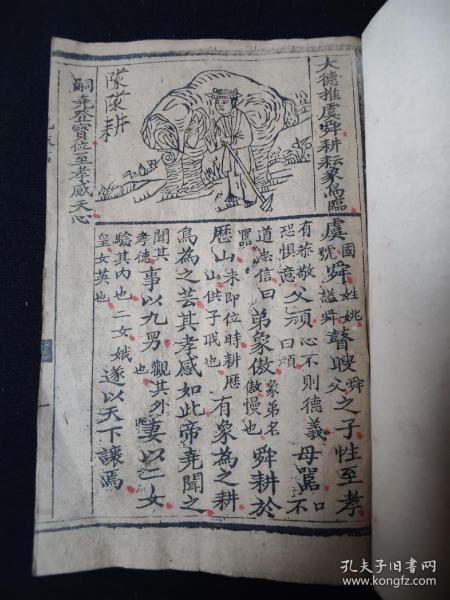 大德推虞舜耕耘象鳥臨
隊隊耕
嗣堯登寳位至孝感天心
虞國號舜姓姚諡舜瞽瞍舜父之子性至孝
有恭敬恐惧意父頑心不則德義曰頑母嚚口不
道忠信曰嚚弟象傲象弟名傲慢也舜耕於
歴山未即位時耕歴山供子职也有象為之耕
鳥為之芸其孝感如此帝堯聞之
聞其孝德也事以九男觀其外也妻以二女
驗其内也二女娥皇女英也遂以天下讓焉
孔夫子旧书网